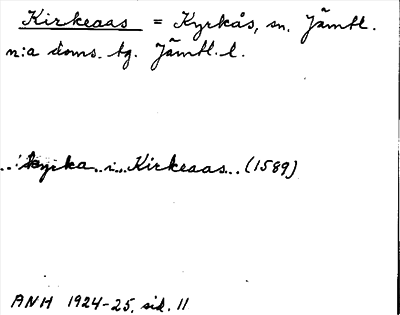 Kirkeaas = Kyrkås, sn. Jämtl.
n:a doms. tg. Jämtl. l.
...kyrka..i..Kirkeaas... (1589)
ANH 1924-25, sid. 11